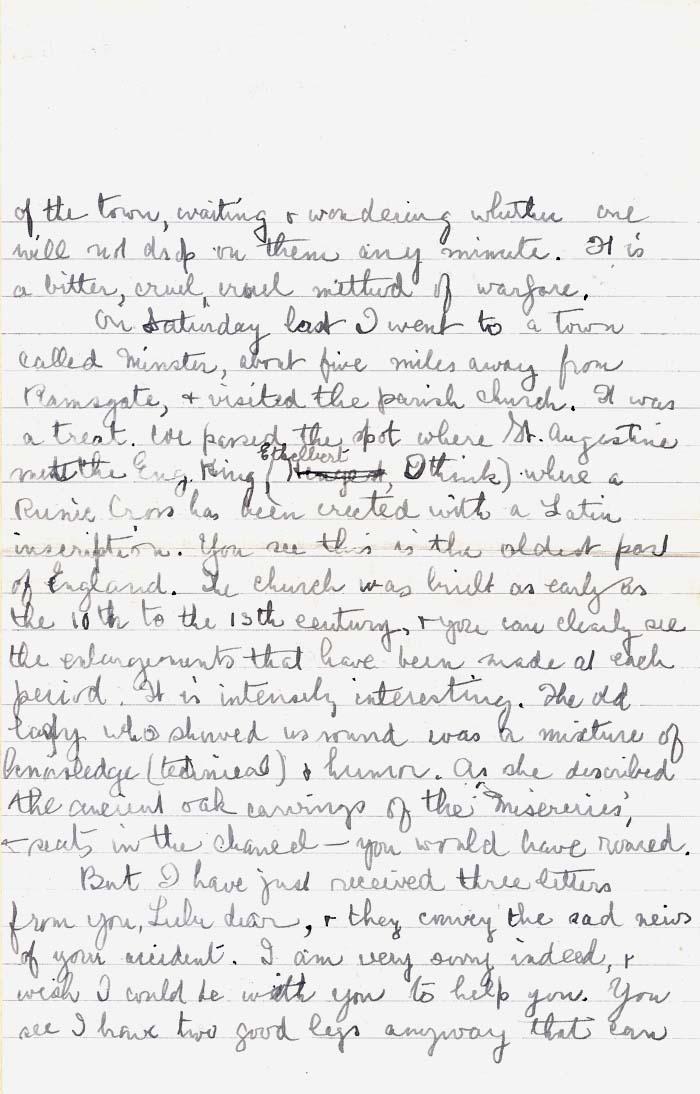 of the town, waiting & wondering whether one
will not drop on them any minute. It is
a bitter, cruel, cruel method of warfare.
On Saturday last I went to a town
called Minster, about five miles away from
Ramsgate, & visited the parish church. It was
a treat. We passed the spot where St. Augustine
Ethelbert
met the Eng. King (Hengest, I think) where a
Runic Cross has been erected with a Latin
inscription. You see this is the oldest part
of England. The church was built as early as
the 10th to the 13th century, & you can clearly see
the enlargements that have been made at each
period. It is intensely interesting. The old
lady who showed us round was a mixture of
knowledge (technical) & humor. As she described
the ancient oak carvings of the 'Misereries',
& seats in the chancel — you would have roared.
But I have just received three letters
from you, Lulu dear, & they convey the sad news
of your accident. I am very sorry indeed, &
wish I could be with you to help you. You
see I have two good legs anyway that can